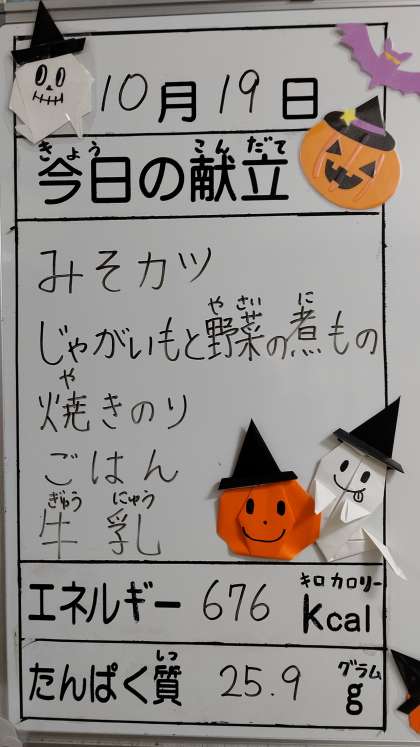 10月19日
きょう こんだて
今日の献立
みそカツ
やさい に
じゃがいもと野菜の煮もの
や
焼きのり
ごはん
ぎゅう にゅう
牛乳
キロカロリー
エネルギー 676 Kcal
しつ グラム
たんぱく質 25.9 g